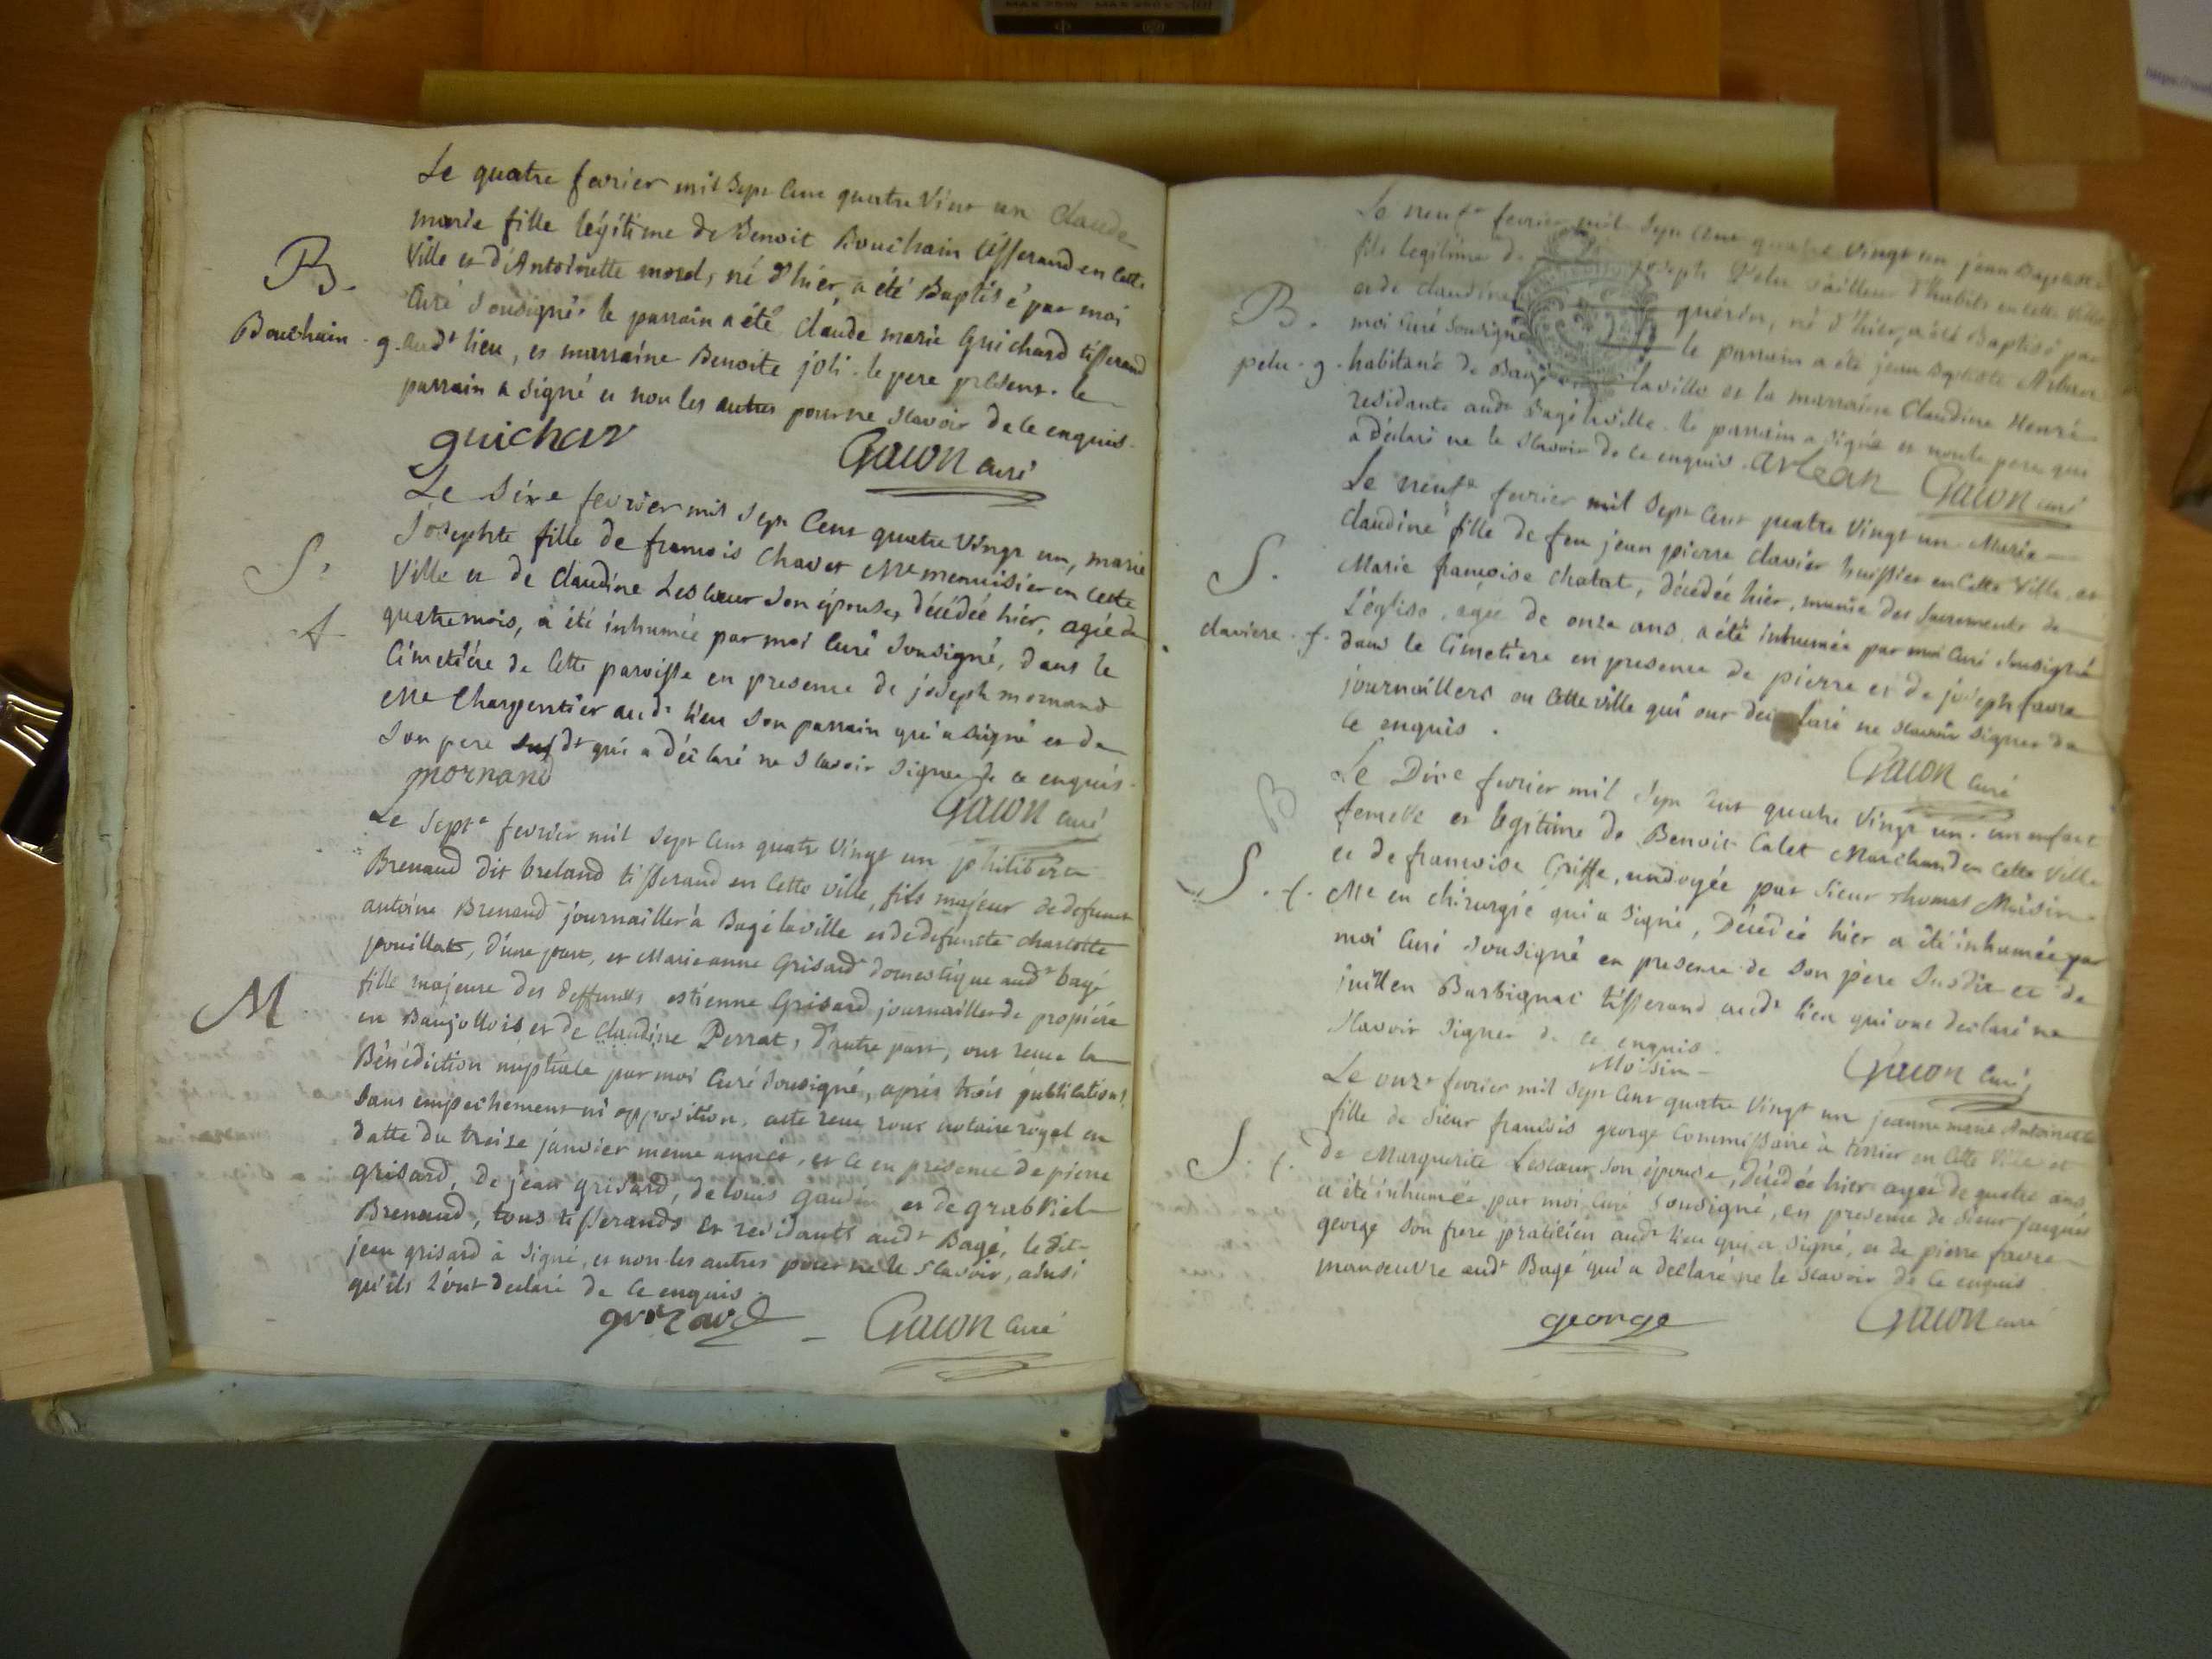 Le quatre fevrier mil Sept Cent quatre Vint un Claude
marie fille légitime de Benoit Bouchain tisserand en cette
Ville et d'Antoinette morel, né d'hier, a été Baptisé par moi
Curé Sousigné. le parrain a été Claude marie Guichard tisserand
audt lieu, et marraine Benoite joli. le pere présent. le
parrain a signé et non les autres pour ne Scavoir de ce enquis.
B.
Bouchain. g.
guichar
Gacon curé
Le Sixe fevrier mil Sept Cent quatre Vingt un, marie
Josephte fille de francois Chavet Me menuisier en Cette
Ville et de Claudine Lescoeur Son épouse, décédée hier, agée de
quatre mois, a été inhumée par moi Curé Sousigné, dans le
Cimetière de Cette paroisse en presence de joseph mornand
Me Charpentier audt lieu Son parrain qui a signé et de
Son pere susdt qui a déclaré ne Scavoir signer de ce enquis.
S.
f
mornand
Gacon curé
Le Septe fevrier mil Sept Cent quatre Vingt un philibert
Brenaud dit breland tisserand en Cette ville, fils majeur de defunt
antoine Brenaud journailler à Bagé laville et de defuncte charlotte
pouillat, d'une part, et Marieanne Grisard domestique audt bagé
fille majeure des deffuncts estienne Grisard journailler de propiere
en Baujollois et de Claudine Perrat, d'autre part, ont recue la
Bénédiction nuptiale par moi Curé Sousigné, après trois publications
Sans empechement ni opposition, acte recu sous notaire royal en
datte du treize janvier meme année, et ce en présence de pierre
grisard, de jean grisard, de louis gaudin et de grabriel
Brenaud, tous tisserands et residants audt Bagé, le dit
jean grisard à Signé, et non les autres pour ne le Scavoir, ainsi
qu'ils l'ont declaré de Ce enquis.
M
grizard
Gacon Curé
Le neufe fevrier mil Sept Cent quatre Vingt un jean Baptiste
fils legitime de joseph Pelu tailleur d'habits en cette Ville
et de claudine guérin, né d'hier, a été Baptisé par
moi Curé Sousigné le parrain a été jean Baptiste Arban
habitant de Bagé laville et la marraine Claudine Henri
residante audt Bagé laville. le parrain a Signé et non le pere qui
a déclaré ne le Scavoir de ce enquis.
B.
pelu. g.
Gacon curé
Le neufe fevrier mil Sept Cent quatre Vingt un Marie
Claudine fille de feu jean pierre Clavier huissier en Cette Ville, et
Marie francoise Chatat, décédée hier, munie des Sacrements de
l'église, agée de onze ans, a été inhumée par moi Curé Sousigné
dans le Cimetiere en presence de pierre et de joseph favre
journaillers en Cette ville qui ont declaré ne Scavoir signer de
ce enquis.
S.
claviere. f.
Gacon Curé
Le Dixe fevrier mil Sept Cent quatre Vingt un. un enfant
femelle et légitime de Benoit Calet Marchand en Cette Ville
et de francoise Griffe, undoyée par Sieur thomas Moisin
Me en chirurgie qui a Signé, Décédée hier a été inhumée par
moi Curé Sousigné en presence de Son père Susdit et de
juillen Barbignat tisserand audt lieu qui ont declaré ne
Scavoir Signer de ce enquis.
B
S. f.
Moisin
Gacon Curé
Le onze fevrier mil Sept Cent quatre Vingt un jeanne marie Antoinette
fille de Sieur francois george Commissaire à terrier en Cette Ville et
de Marguerite Lescoeur Son épouse, décédée hier agée de quatre ans
a été inhumée par moi Curé Sousigné, en presence de Sieur jacques
george Son frere praticien audt lieu qui a signé, et de pierre favre
manoeuvre audt Bagé qui a declaré ne le Scavoir de Ce enquis
S. f.
george
Gacon curé